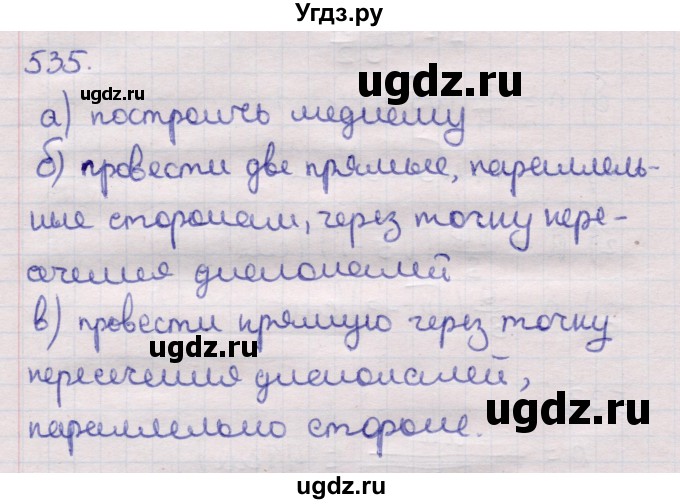 Угдз.ру
535.
ugdz.ru
ugdz.ru
а) построить медиану
б) провести две прямые, параллель-
ные сторонам, через точку пере-
ugdz.ru
сечения диагоналей
в) провести прямую через точку
ugdz.ru
пересечения диагоналей,
ugdz.ru
параллельно стороне.
ugdz.ru